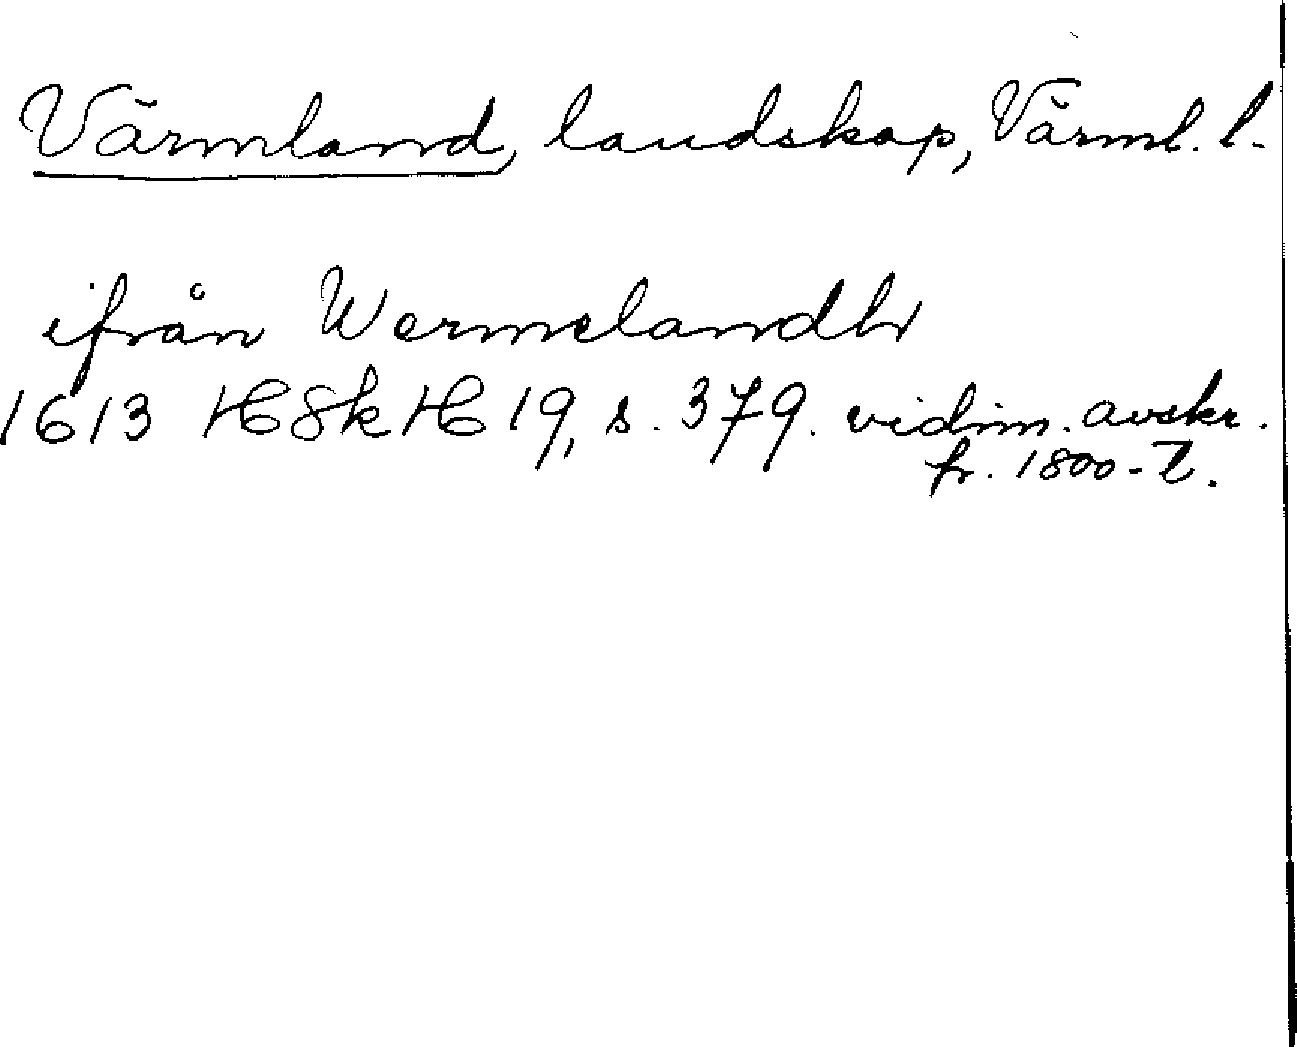 Värmland, landskap, Värml. l.
ifrån Wermelandh
1613 HSkH 19, s. 379. vidim. avskr.
fr. 1800-t.